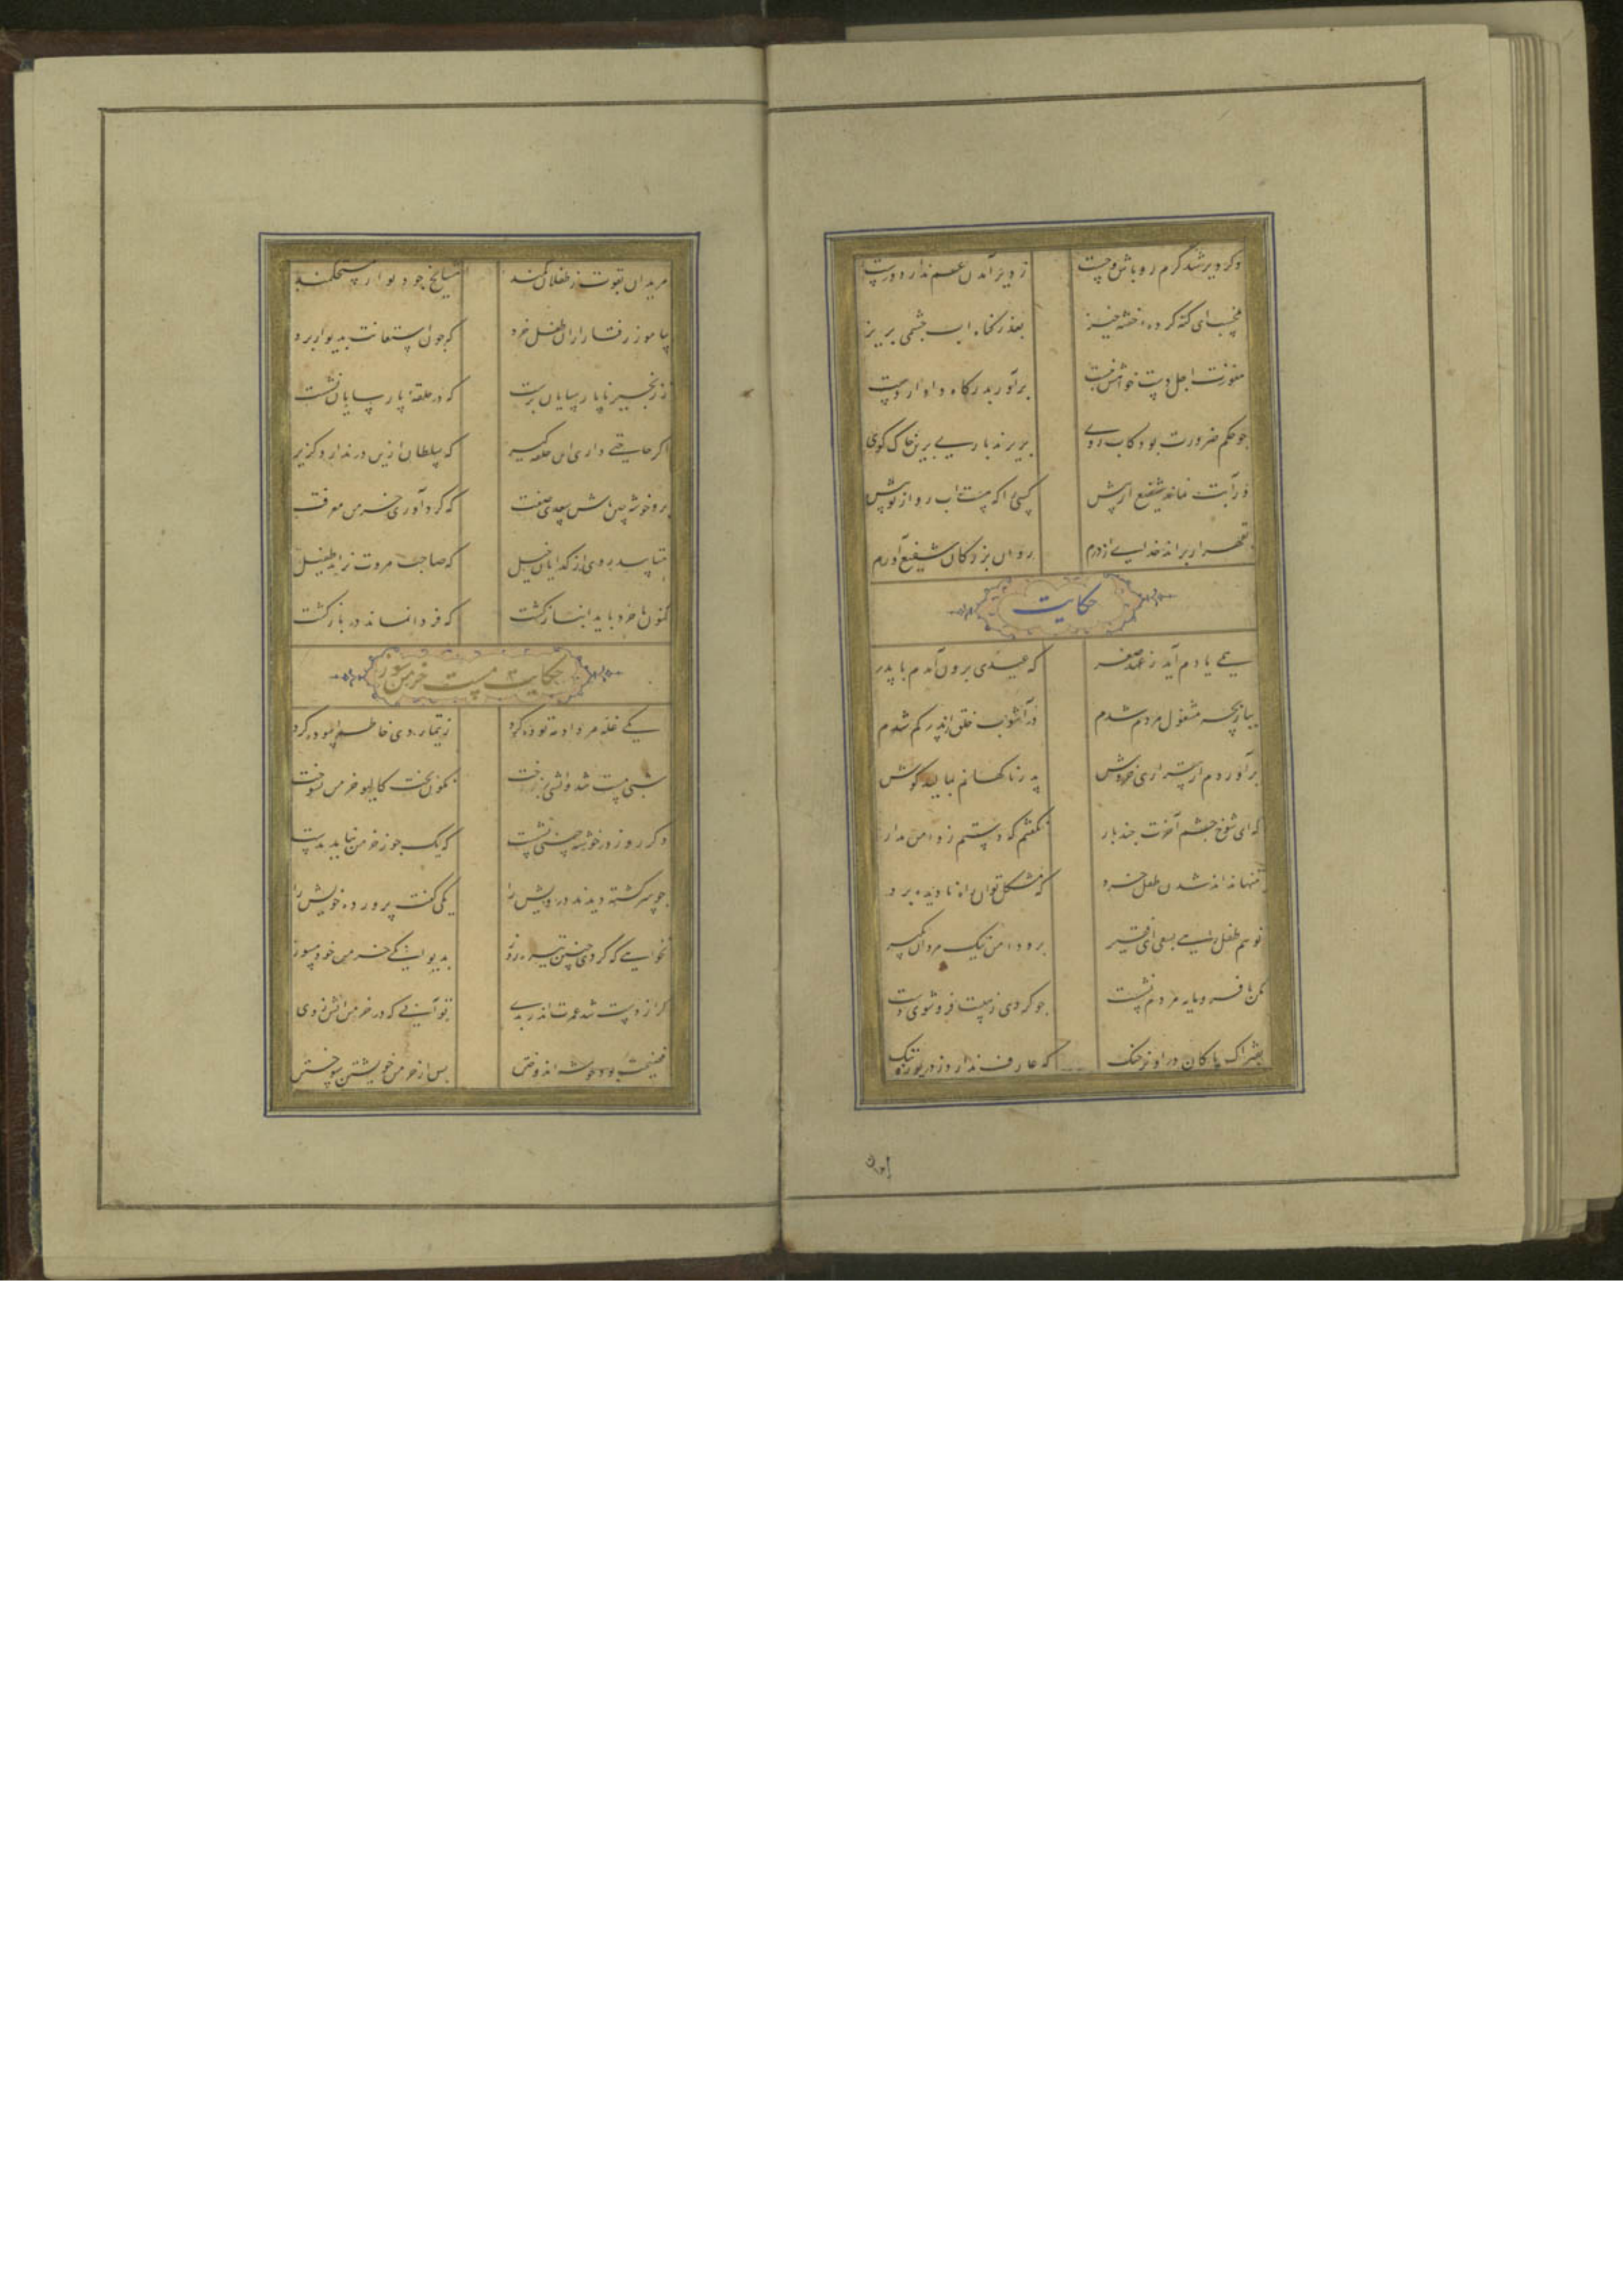 وکر دیر شد کرم رو باش و چست ز دیر آمدن غم ندارد درست
مخسب ای کنه کرده خفته خیز بعذر کناه اب چشمی بریز
هنوزت اجل دست خواهش نبست برآور بدرکاه داور دست
چو حکم ضرورت بود کاب روی بریزند باری برین خاک کوی
ور آبت نماند شفیع آر پیش کسی را که هست اب رو از تو بیش
بقهر ار براند خدای از درم روان بزرکان شفیع آورم
حکایت
همی یادم آید ز عهد صغر که عیدی برون آمدم با پدر
ببازیچه مشغول مردم شدم در آشوب خلق از پدر کم شدم
برآوردم از بیقراری خروش پدر ناکهانم بمالید کوش
که ای شوخ چشم آخرت چند بار نکفتم که دستم ز دامن مدار
بتنها نداند شدن طفل خرد که مشکل توان راه نادیده برد
تو هم طفل راهی بسعی ای فقیر برو دامن نیک مردان بکیر
مکن با فرومایه مردم نشست چو کردی ز هیبت فرو شوی دست
بفتراک پاکان در آویز چنک که عارف ندارد ز دریوزه ننک
مریدان بقوت ز طفلان کمند مشایخ چو دیوار مستحکمند
بیاموز رفتار ازان طفل خرد که چون استعانت بدیوار برد
ز زنجیر ناپارسایان برست که در حلقه پارسایان نشست
اکر حاجتی داری این حلقه کیر که سلطان ازین در ندارد کزیر
برو خوشه چین باش سعدی صفت که کرد آوری خرمن معرفت
متابید روی از کدایان خیل که صاحب مروت نراند طفیل
کنون با خرد باید انباز کشت که فردا نماند ره بازکشت
حکایت مست خرمن سوز
یکی غله مرداد مه توده کرد ز تیمار دی خاطر آسوده کرد
شبی مست شد و آتشی برفروخت نکون بخت کالیو خرمن بسوخت
دکر روز در خوشه چینی نشست که یک جو ز خرمن نیامد بدست
چو سرکشته دیدند درویش را یکی کفت پرورده خویش را
نخواهی که کردی چنین تیره روز بدیوانکی خرمن خود مسوز
کر از دست شد عمرت اندر بدی تو آنی که در خرمن آتش زدی
فضیحت بود خوشه اندوختن پس از خرمن خویشتن سوختن